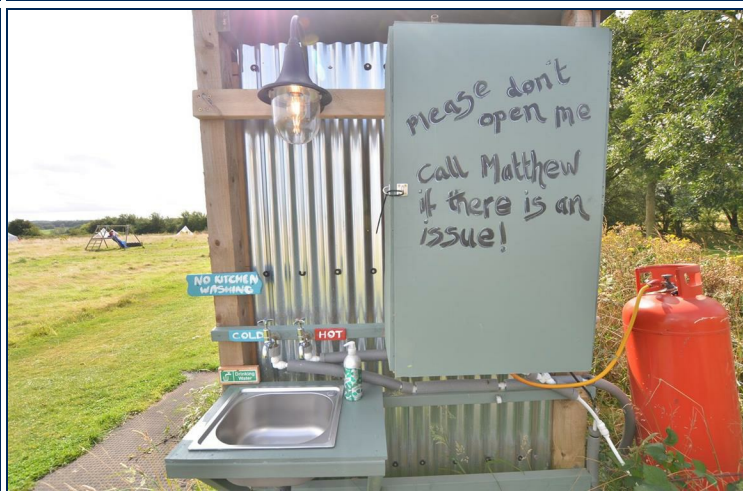 Please don't
open me
Call Matthew
if there is an
issue!
NO KITCHEN
WASHING
COLD
HOT
Drinking
Water